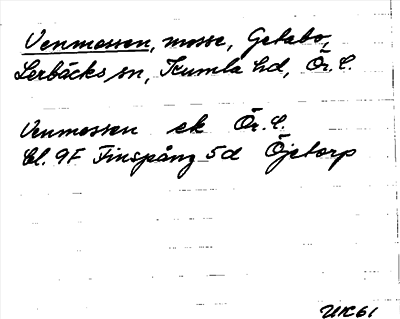 Venmossen, mosse, Getabo,
Lerbäcks sn, Kumla hd, Ör. l.
Venmossen ek Ör. l.
bl. 9F Finspång 5d Öjetorp
UK61